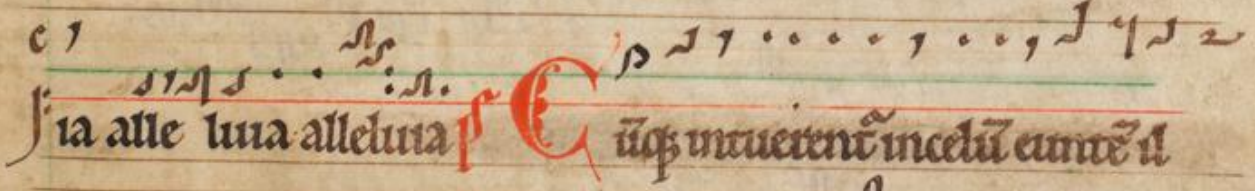 ia alle luia alleluia ps Cūq; intuerent᷑ incelū euntē il